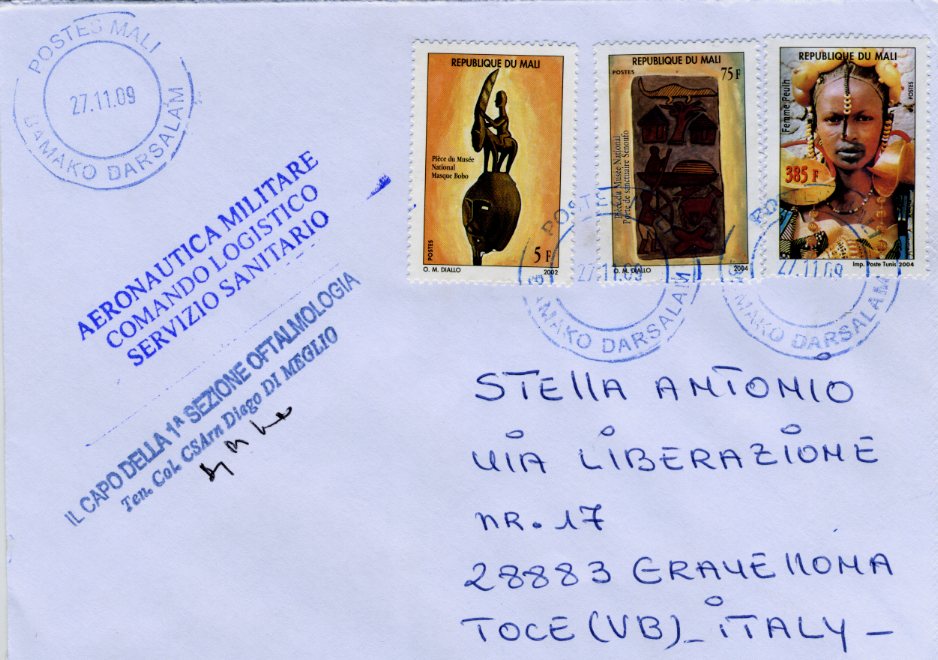 POSTES MALI
27.11.09
BAMAKO DARSALAM
REPUBLIQUE DU MALI
Pièce du Musée
National
Masque Bobo
POSTES
5 F
O. M. DIALLO
2002
REPUBLIQUE DU MALI
POSTES
75 F
Pièce du Musée National
Porte de sanctuaire Senoufo
O. M. DIALLO
2004
REPUBLIQUE DU MALI
Femme Peulh
POSTES
385 F
Imp. Poste Tunis 2004
POSTES
27.11.09
BAMAKO DARSALAM
27.11.09
BAMAKO DARSALAM
AERONAUTICA MILITARE
COMANDO LOGISTICO
SERVIZIO SANITARIO
IL CAPO DELLA 1ª SEZIONE OFTALMOLOGIA
Ten. Col. CSArn Diego DI MEGLIO
STELLA ANTONIO
VIA LIBERAZIONE
NR. 17
28883 GRAVELLONA
TOCE (VB) - ITALY -